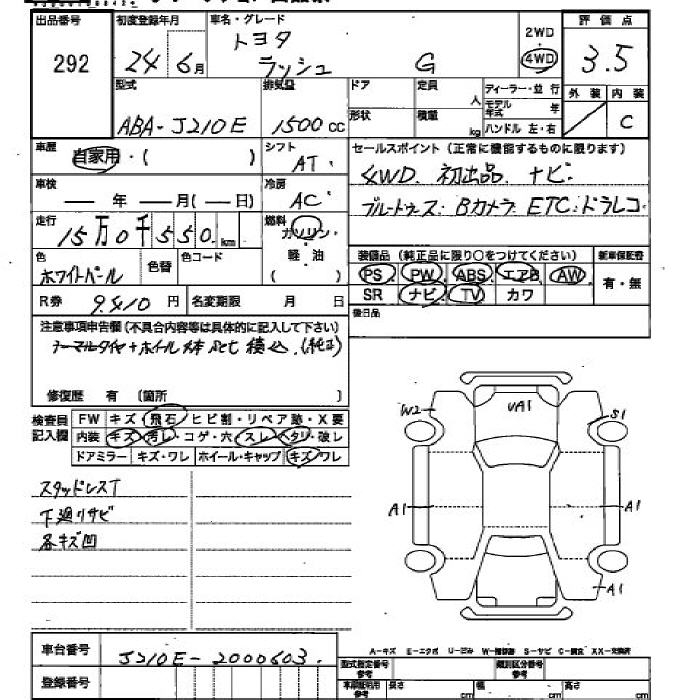 出品番号 初度登録年月 車名・グレード 2WD 評価点
292 24年 6月 トヨタ ラッシュ G 4WD 3.5
型式 排気量 ドア 定員 人 ディーラー・並行 外装 内装
ABA-J210E 1500cc 形状 積載 kg モデル年式 年 C
ハンドル 左・右
車歴 自家用・( ) シフト AT セールスポイント (正常に機能するものに限ります)
車検 年 月(日) 冷房 AC 4WD. 初出品 ナビ
走行 15万0千550km 燃料 ガソリン・軽油 ( ) ブルートゥース・Bカメラ ETC・ドラレコ
色 ホワイトパール 色替 色コード 装備品 (純正品に限り○をつけてください) 新車保証書
PS PW ABS エアB AW 有・無
R券 9410円 名変期限 月 日 SR ナビ TV カワ
後日品
注意事項申告欄(不具合内容等は具体的に記入して下さい)
ノーマルタイヤ+ホイール4本 積込(純正)
修復歴 有 〔箇所 〕
検査員記入欄 FW キズ・飛石・ヒビ割・リペア跡・X要
内装 キズ・汚レ・コゲ・穴・スレ・ヘタリ・破レ
ドアミラー キズ・ワレ ホイール・キャップ キズ・ワレ
W2 UA1 S1
スタッドレスT
下廻りサビ
A1 A1
各キズ凹
A1
車台番号 J210E-2000603.
A-キズ E-エクボ U-凹み S-サビ XX-交換済
登録番号
型式指定番号 参考 類別区分番号 参考
長さ cm 幅 cm 高さ cm